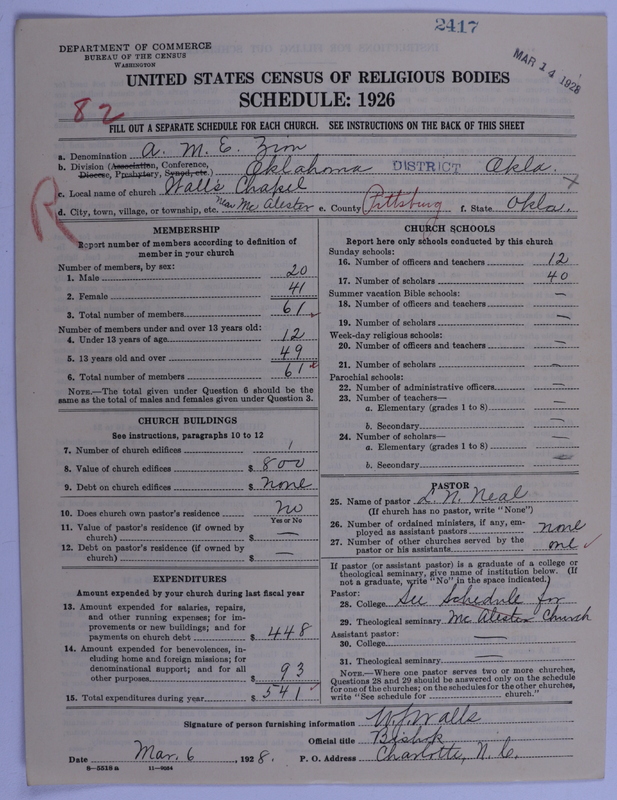 2417
MAR 14 1928
DEPARTMENT OF COMMERCE
BUREAU OF THE CENSUS
WASHINGTON
UNITED STATES CENSUS OF RELIGIOUS BODIES
SCHEDULE: 1926
82
FILL OUT A SEPARATE SCHEDULE FOR EACH CHURCH. SEE INSTRUCTIONS ON THE BACK OF THIS SHEET
a. Denomination A. M. E. Zion
b. Division (Association, Conference, Diocese, Presbytery, Synod, etc.) Oklahoma DISTRICT Okla.
R
c. Local name of church Walls Chapel
d. City, town, village, or township, etc. Near McAlester e. County Pittsburg f. State Okla.
MEMBERSHIP
Report number of members according to definition of
member in your church
Number of members, by sex:
1. Male 20
2. Female 41
3. Total number of members 61
Number of members under and over 13 years old:
4. Under 13 years of age 12
5. 13 years old and over 49
6. Total number of members 61
NOTE.—The total given under Question 6 should be the
same as the total of males and females given under Question 3.
CHURCH BUILDINGS
See instructions, paragraphs 10 to 12
7. Number of church edifices 1
8. Value of church edifices $ 800
9. Debt on church edifices $ None
10. Does church own pastor's residence No
Yes or No
11. Value of pastor's residence (if owned by
church) $ —
12. Debt on pastor's residence (if owned by
church) $ —
EXPENDITURES
Amount expended by your church during last fiscal year
13. Amount expended for salaries, repairs,
and other running expenses; for im-
provements or new buildings; and for
payments on church debt $ 448
14. Amount expended for benevolences, in-
cluding home and foreign missions; for
denominational support; and for all
other purposes $ 93
15. Total expenditures during year $ 541
CHURCH SCHOOLS
Report here only schools conducted by this church
Sunday schools:
16. Number of officers and teachers 12
17. Number of scholars 40
Summer vacation Bible schools:
18. Number of officers and teachers —
19. Number of scholars —
Week-day religious schools:
20. Number of officers and teachers —
21. Number of scholars —
Parochial schools:
22. Number of administrative officers —
23. Number of teachers—
a. Elementary (grades 1 to 8) —
b. Secondary —
24. Number of scholars—
a. Elementary (grades 1 to 8) —
b. Secondary —
PASTOR
25. Name of pastor L. N. Neal
(If church has no pastor, write "None")
26. Number of ordained ministers, if any, em-
ployed as assistant pastors none
27. Number of other churches served by the
pastor or his assistants one
If pastor (or assistant pastor) is a graduate of a college or
theological seminary, give name of institution below. (If
not a graduate, write "No" in the space indicated.)
Pastor:
28. College See Schedule for
29. Theological seminary McAlester Church
Assistant pastor:
30. College —
31. Theological seminary —
NOTE.—Where one pastor serves two or more churches,
Questions 28 and 29 should be answered only on the schedule
for one of the churches; on the schedules for the other churches,
write "See schedule for church."
Signature of person furnishing information W. J. Walls
Official title Bishop
Date Mar. 6, 1928. P. O. Address Charlotte, N. C.
8—5516 a 11—9084